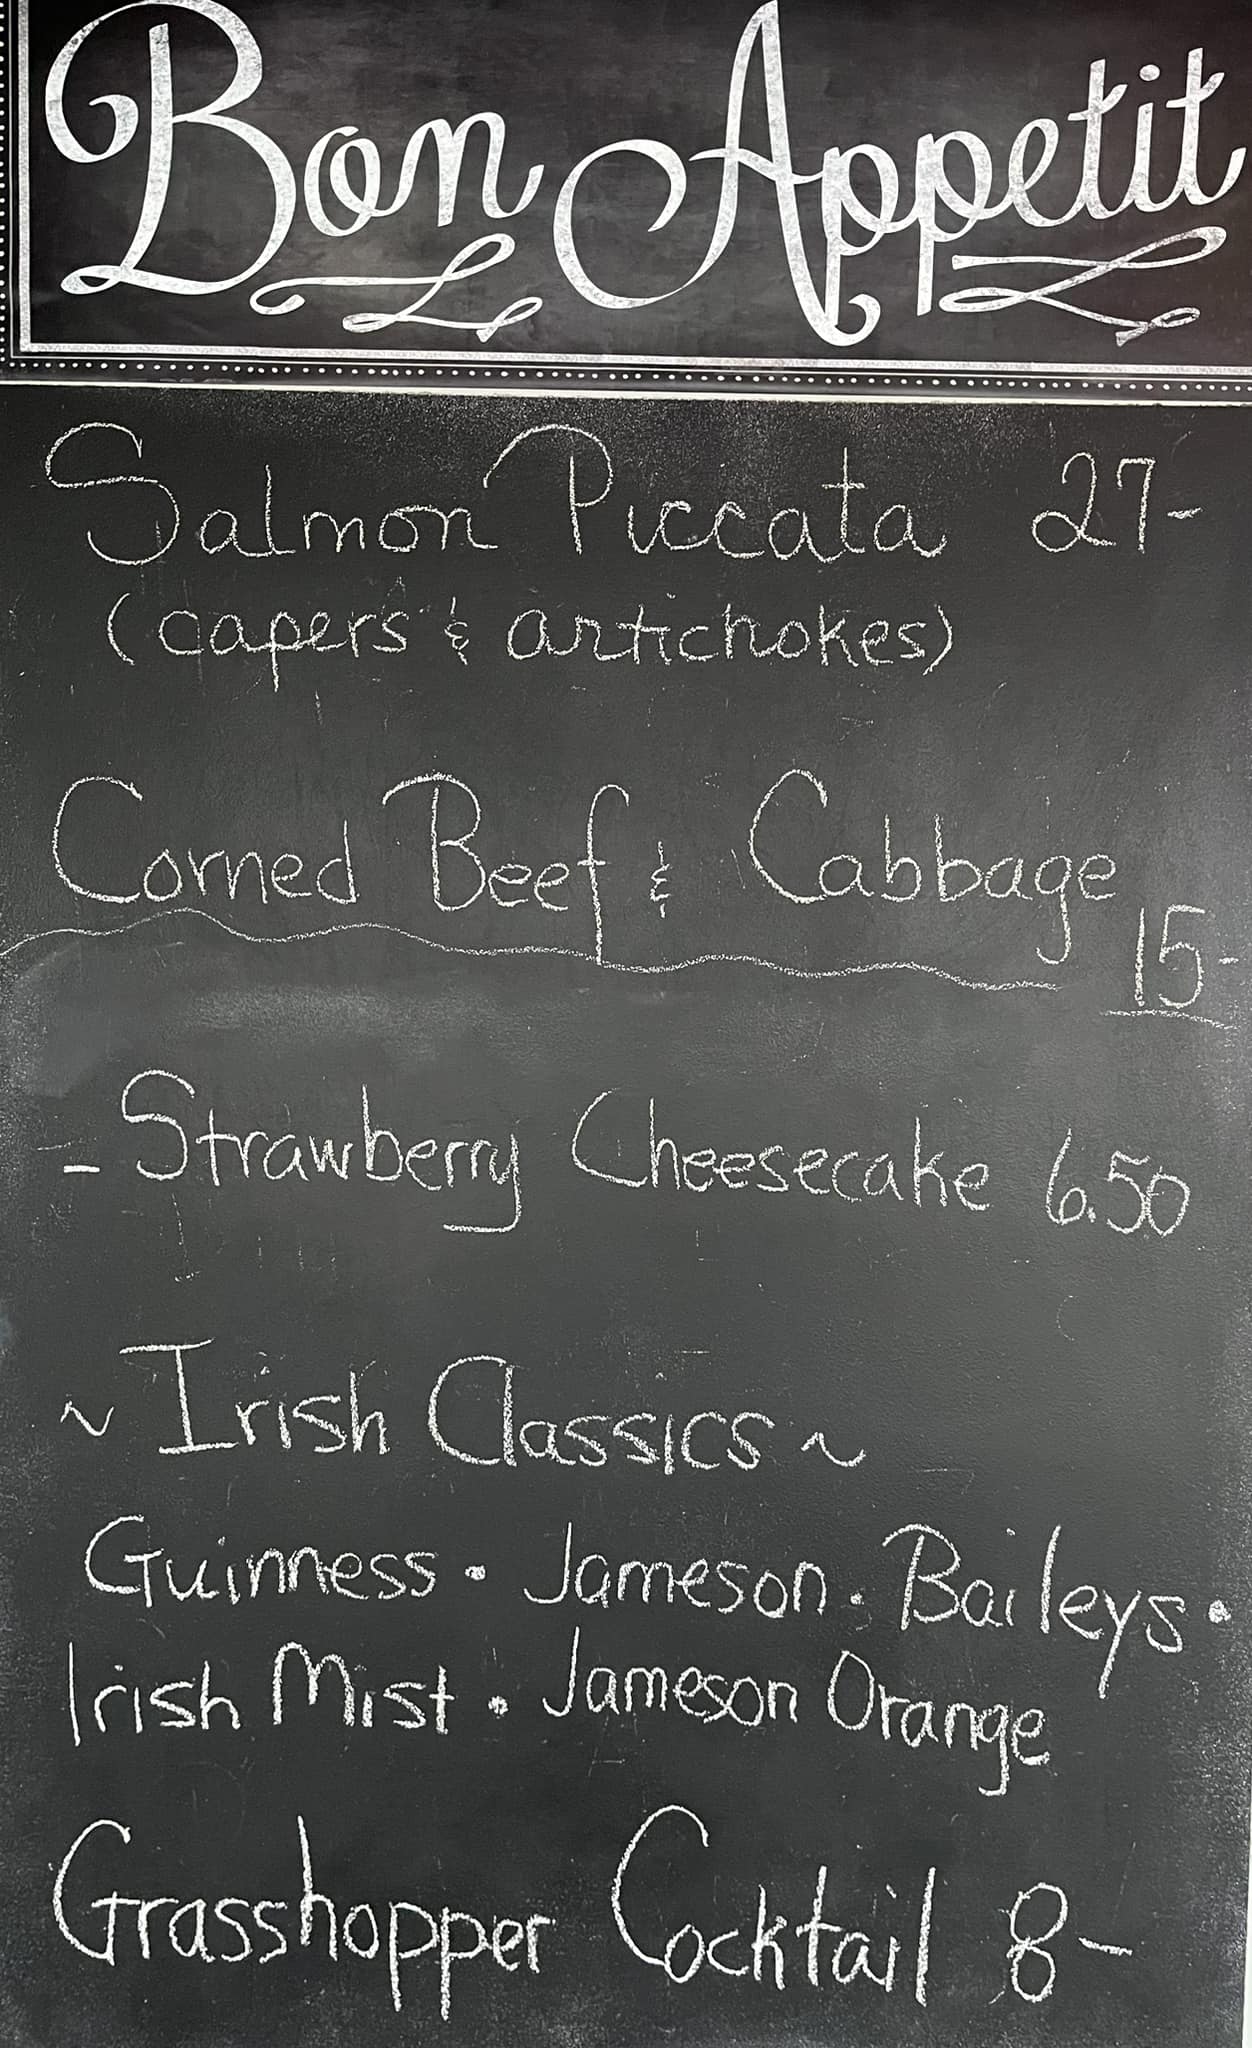 Bon Appetit
Salmon Piccata 27-
(capers & artichokes)
Corned Beef & Cabbage
15-
- Strawberry Cheesecake 6.50
~ Irish Classics ~
Guinness • Jameson • Baileys •
Irish Mist • Jameson Orange
Grasshopper Cocktail 8-